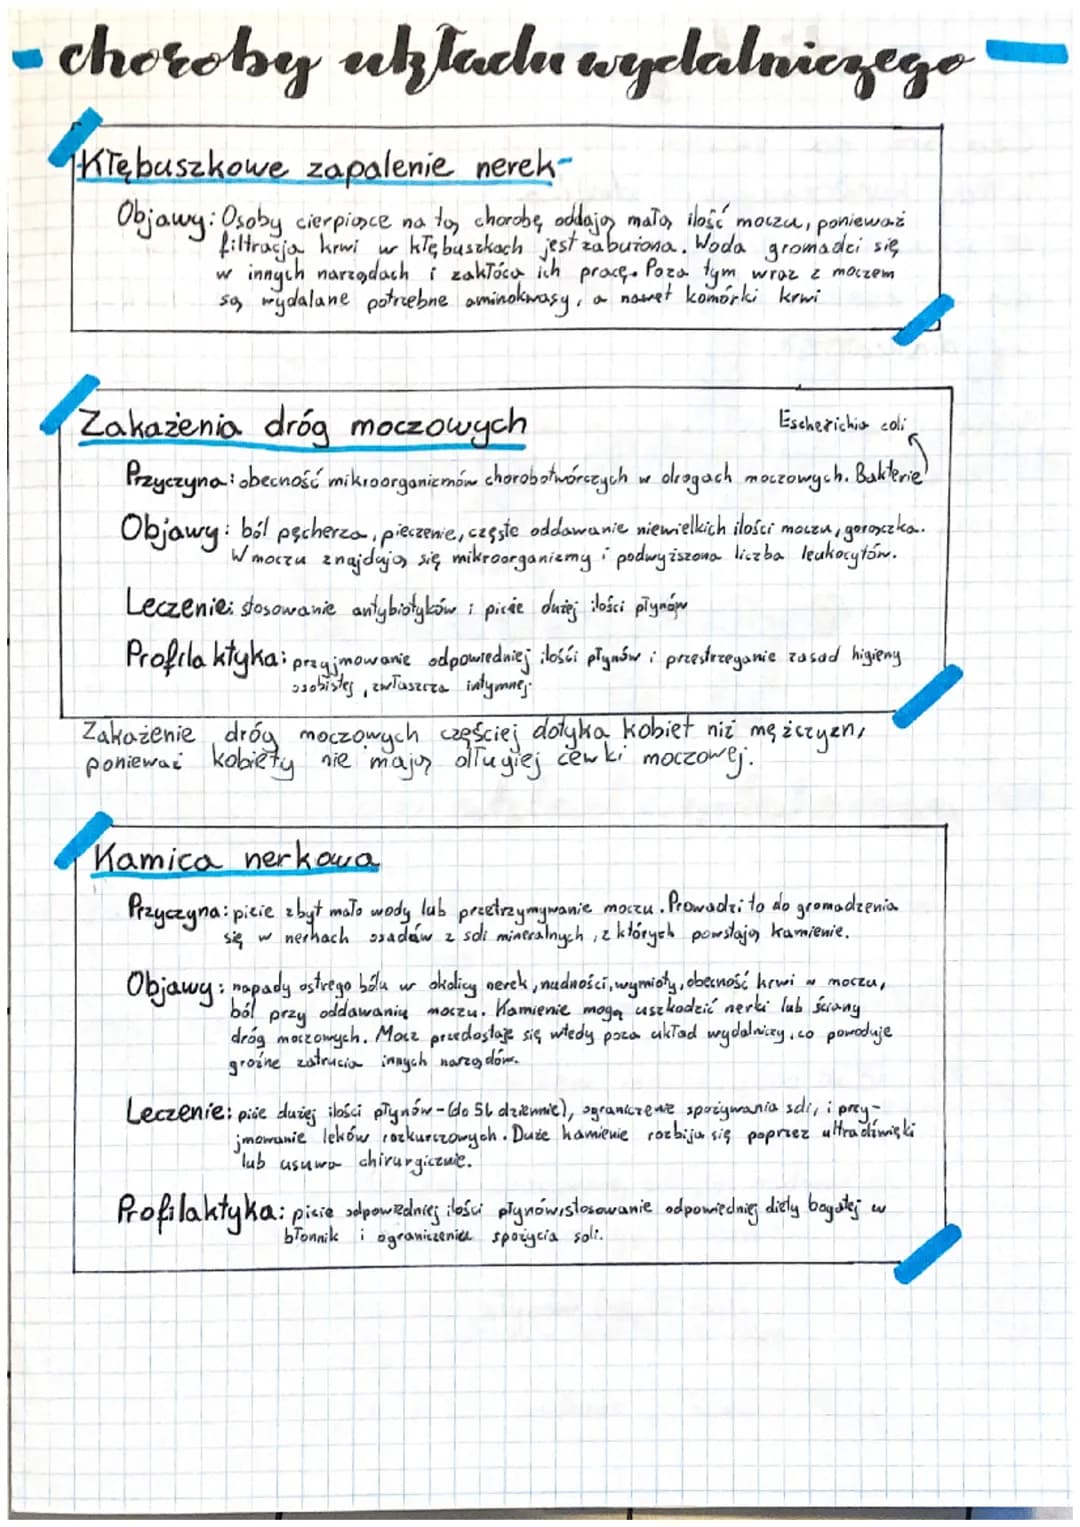 - choroby układu wydalniczego -
Kłębuszkowe zapalenie nerek-
Objawy: Osoby cierpiące na tą chorobę oddają małą ilość moczu, ponieważ
filtracja krwi w kłębuszkach jest zaburzona. Woda gromadzi się
w innych narządach i zakłóca ich pracę. Poza tym wraz z moczem
są wydalane potrzebne aminokwasy, a nawet komórki krwi
Zakażenia dróg moczowych
Escherichia coli
Przyczyna: obecność mikroorganizmów chorobotwórczych w drogach moczowych. Bakterie
Objawy: ból pęcherza, pieczenie, częste oddawanie niewielkich ilości moczu, gorączka.
W moczu znajdują się mikroorganizmy i podwyższona liczba leukocytów.
Leczenie: stosowanie antybiotyków i picie dużej ilości płynów
Profilaktyka: przyjmowanie odpowiedniej ilości płynów i przestrzeganie zasad higieny
osobistej, zwłaszcza intymnej.
Zakażenie dróg moczowych częściej dotyka kobiet niż mężczyzn,
ponieważ kobiety nie mają długiej cewki moczowej.
Kamica nerkowa
Przyczyna: picie zbyt mało wody lub przetrzymywanie moczu. Prowadzi to do gromadzenia
się w nerkach osadów z soli mineralnych, z których powstają kamienie.
Objawy: napady ostrego bólu w okolicy nerek, nudności, wymioty, obecność krwi w moczu,
ból przy oddawaniu moczu. Kamienie mogą uszkodzić nerki lub ściany
dróg moczowych. Mocz przedostaje się wtedy poza układ wydalniczy, co powoduje
groźne zatrucia innych narządów.
Leczenie: picie dużej ilości płynów - (do 5L dziennie), ograniczenie spożywania soli, i przy-
jmowanie leków rozkurczowych. Duże kamienie rozbija się poprzez ultradźwięki
lub usuwa chirurgicznie.
Profilaktyka: picie odpowiedniej ilości płynów, stosowanie odpowiedniej diety bogatej w
błonnik i ograniczenie spożycia soli.